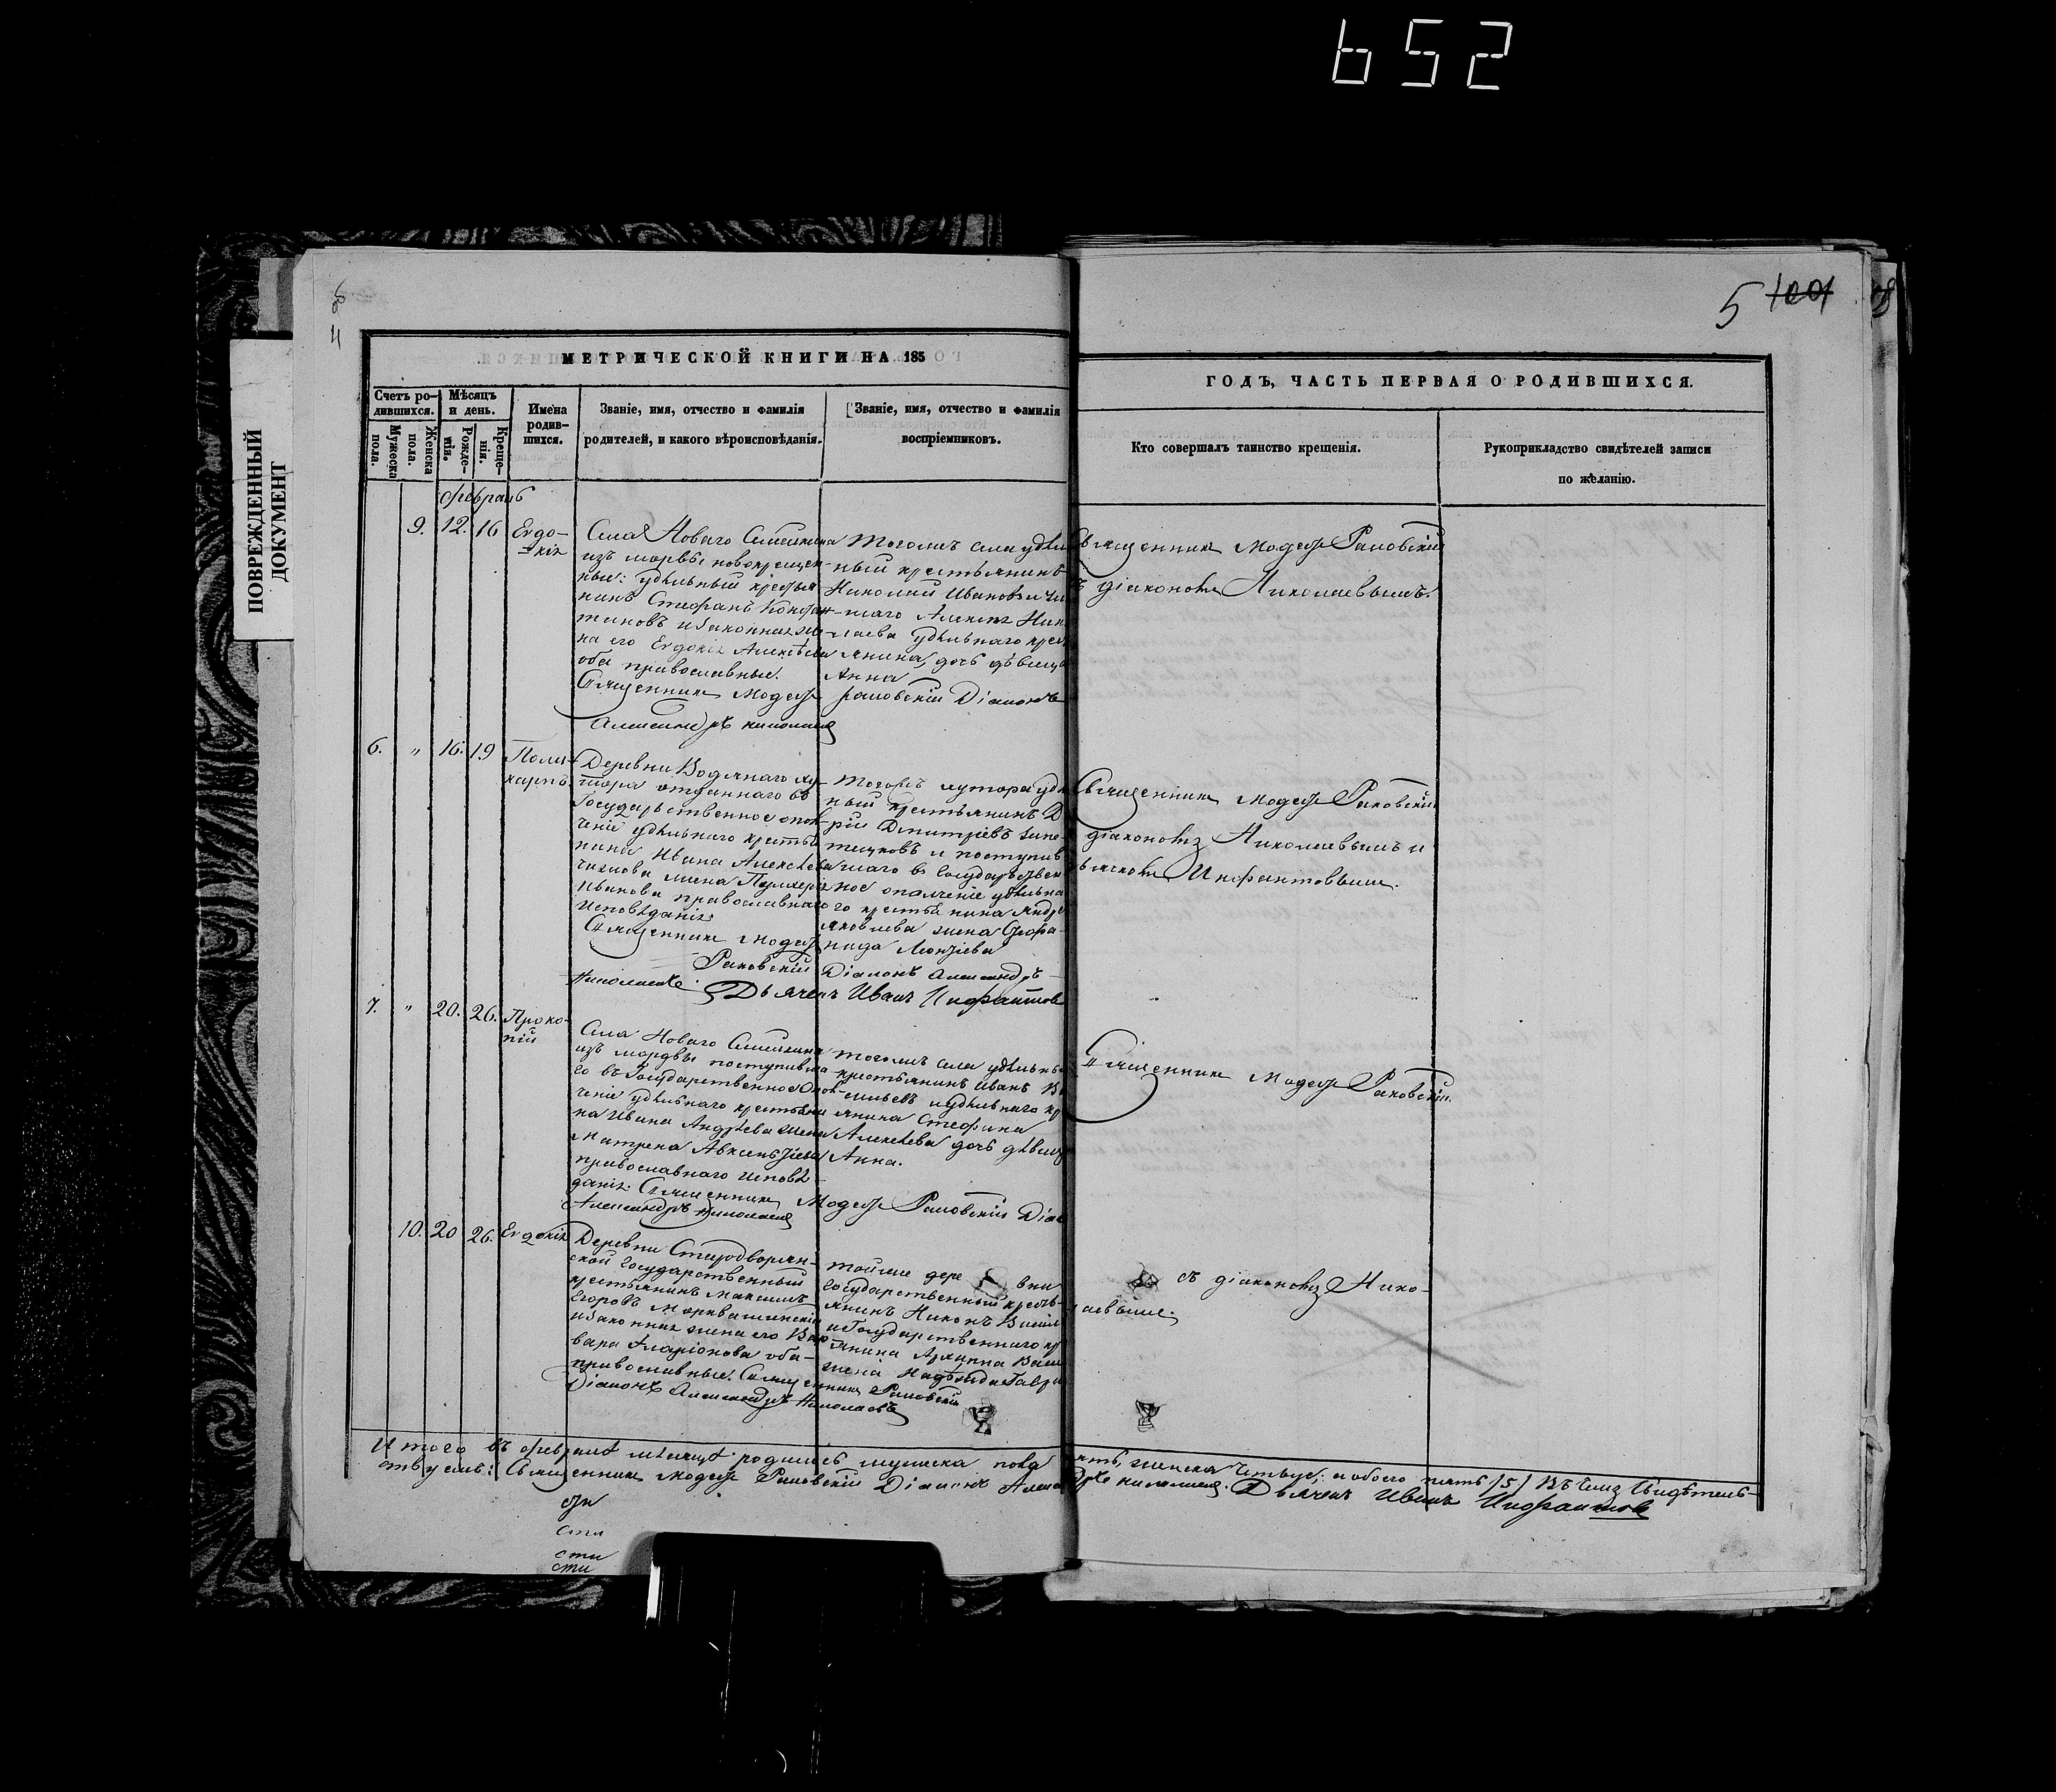 652
5 1001
ПОВРЕЖДЕННЫЙ
ДОКУМЕНТ
МЕТРИЧЕСКОЙ КНИГИ НА 185
ГОДЪ, ЧАСТЬ ПЕРВАЯ О РОДИВШИХСЯ.
Счетъ ро-
дившихся.
Мужеска
пола.
Женска
пола.
Мѣсяцъ
и день.
Рожде-
нія.
Креще-
нія.
Имена
родив-
шихся.
Званіе, имя, отчество и фамилія
родителей, и какого вѣроисповѣданія.
Званіе, имя, отчество и фамилія
воспріемниковъ.
Кто совершалъ таинство крещенія.
Рукоприкладство свидѣтелей записи
по желанію.
февраль
9. 12. 16 Евдо-
кія
Села Новаго Семейкина
изъ мордвы новокрещен-
ные: удѣльный крестья
нинъ Стефанъ Констан-
тиновъ и законная же
на его Евдокія Алексѣева
оба православные.
Священникъ Модестъ Раковскій Діаконъ
Александръ Николаевъ
тогожъ села удѣль
ный крестьянинъ
Николай Ивановъ и
Анна
Священникъ Модестъ Раковскій
съ діакономъ Николаевымъ.
6. " 16. 19 Поли-
карпъ
Деревни Водянаго ху-
тора отданнаго въ
Государственное опол-
ченіе удѣльнаго крестья
нина Ивана Алексѣева
жена
Иванова православнаго
исповѣданія
Священникъ Модестъ
Раковскій Діаконъ Александръ
Николаевъ. Дьячекъ Иванъ Инфантовъ
тогожъ хутора удѣль
ный крестьянинъ
рій Дмитріевъ
и поступив
шаго въ Государствен
ное ополченіе удѣльна
го крестьянина Андре
Яковлева жена Стефа-
нида Леонтьева
Священникъ Модестъ Раковскій
діакономъ Николаевымъ и
дьячкомъ Инфантовымъ.
7. " 20. 26. Проко-
пій
Села Новаго Семейкина
изъ мордвы поступивша
го въ Государственное Опол-
ченіе удѣльнаго крестьяни
на Ивана Андрѣева жена
Матрена Авксентіева
православнаго исповѣ-
данія. Священникъ Модестъ Раковскій Діак
Александръ Николаевъ
тогожъ села удѣльный
крестьянинъ Иванъ Ва
сильевъ и удѣльнаго кр
янина Стефана
Алексѣева дочь дѣвица
Анна.
Священникъ Модестъ Раковскій.
10. 20 26. Евдокія
Деревни Стародворян-
ской Государственный
крестьянинъ Максимъ
Егоровъ
и законная жена его Вар
вара Иларіонова оба-
православные. Священникъ Раковскій
Діаконъ Александръ Николаевъ
тойже дере вни
Государственный кресть-
янинъ Никонъ Васил
и Государственнаго кр
янина Архипа Васи
жена Надѣжда Гаври
съ діакономъ Нико-
лаевымъ.
Итого въ февралѣ мѣсяцѣ родилось мужеска пола пять, женска и обоего пять (5) Въ чемъ Свидѣтель-
ствуемъ: Священникъ Модестъ Раковскій Діаконъ Александръ Николаевъ. Дьячекъ Иванъ Инфантовъ
сти
сти
сти